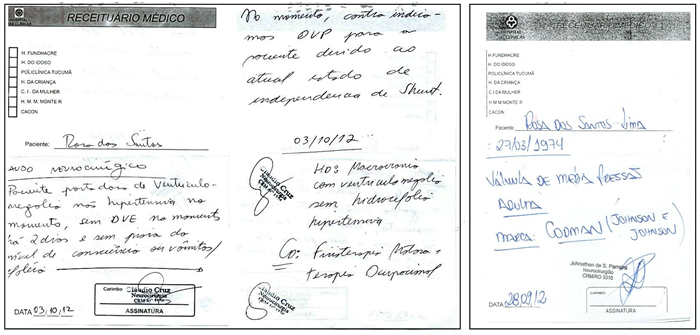 RECEITUÁRIO MÉDICO
H. FUNDHACRE
H. DO IDOSO
POLICLÍNICA TUCUMÃ
H. DA CRIANÇA
C. I. DA MULHER
H. M. M. MONTE R
CACON
Paciente: Rosa dos Santos
Laudo neurocirúrgico
Paciente portadora de Ventriculo-
megalia não hipertensiva no
momento, sem DVE no momento
há 2 dias e sem piora do
nível de consciência ou vômitos/
cefaleia
Carimbo
Cláudio Cruz
Neurocirurgia
DATA 03/10/12
ASSINATURA
No momento, contra indica-
mos DVP para a
paciente devido ao
atual estado de
independencia de Shunt.
03/10/12
Cláudio Cruz
Neurocirurgia
HD: Macrocrania
com ventriculomegalia
sem hidrocefalia
hipertensiva
Cd: Fisioterapia Motora +
terapia Ocupacional
Cláudio Cruz
Neurocirurgia
RECEITUÁRIO MÉDICO
H. FUNDHACRE
H. DO IDOSO
POLICLÍNICA TUCUMÃ
H. DA CRIANÇA
C. I. DA MULHER
H. M. M. MONTE R
CACON
Paciente: ROSA DOS SANTOS LIMA
27/03/1974
VÁLVULA DE MÉDIA PRESSÃO
ADULTA
MARCA: CODMAN (JOHNSON E
JOHNSON)
Johnathan de S. Parreira
Neurocirurgião
CRM/RO 3310
Carimbo
DATA 28/09/12
ASSINATURA